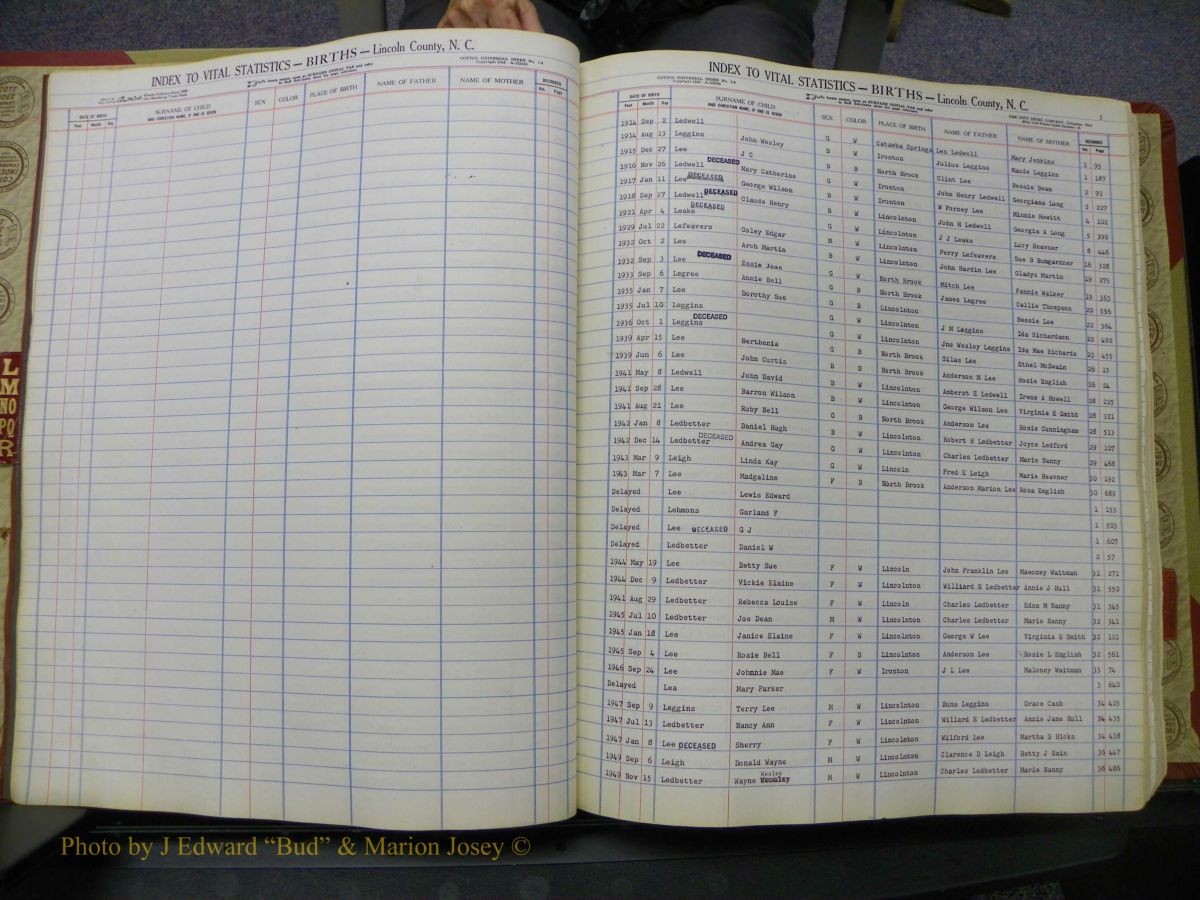 INDEX TO VITAL STATISTICS — BIRTHS — Lincoln County, N. C.
COTTCO UNIVERSAL INDEX No. 1-A
DATE OF BIRTH
Year Month Day
SURNAME OF CHILD
AND CHRISTIAN NAME, IF ONE IS GIVEN
SEX
COLOR
PLACE OF BIRTH
NAME OF FATHER
NAME OF MOTHER
RECORDED
Vol. Page
L
M
NO
PQ
R
INDEX TO VITAL STATISTICS — BIRTHS — Lincoln County, N. C.
COTTCO UNIVERSAL INDEX No. 1-A
5
DATE OF BIRTH
Year Month Day
SURNAME OF CHILD
AND CHRISTIAN NAME, IF ONE IS GIVEN
SEX
COLOR
PLACE OF BIRTH
NAME OF FATHER
NAME OF MOTHER
RECORDED
Vol. Page
1914 Sep 2 Ledwell G W Catawba Springs Len Ledwell Mary Jenkins 1 95
1914 Aug 13 Leggins John Wesley B W Ironton Julius Leggins Maude Leggins 1 187
1915 Dec 27 Lee J C B B North Brook Clint Lee Bessie Beam 2 93
1916 Nov 26 Ledwell DECEASED Mary Catherina G W Ironton John Henry Ledwell Georgiana Long 3 227
1917 Jan 11 Lee DECEASED George Wilson B W Ironton W Forney Lee Minnie Hewitt 4 102
1918 Sep 27 Ledwell DECEASED Claude Henry B W Lincolnton John H Ledwell Georgia A Long 5 396
1921 Apr 4 Leake DECEASED G W Lincolnton J J Leake Lucy Heavner 8 446
1929 Jul 22 Lefeavers Coley Edgar M W Lincolnton Perry Lefeavers Sue B Bumgardner 16 328
1932 Oct 2 Lee Arch Martin B W Lincolnton John Hardin Lee Gladys Martin 19 275
1932 Sep 3 Lee DECEASED Essie Jean G W North Brook Mitch Lee Fannie Walker 19 363
1933 Sep 6 Legree Annie Bell G B North Brook James Legree Callie Thompson 20 556
1935 Jan 7 Lee Dorothy Sue G B Lincolnton Bessie Lee 22 364
1935 Jul 10 Leggins G W Lincolnton J M Leggins Ida Richardson 22 492
1936 Oct 1 Leggins DECEASED G W Lincolnton Jno Wesley Leggins Ida Mae Richards 23 455
1939 Apr 15 Lee Berthenia G B North Brook Silas Lee Ethel McSwain 26 15
1939 Jun 6 Lee John Curtis B B North Brook Anderson M Lee Rosie English 26 24
1941 May 8 Ledwell John David B W Lincolnton Amherst E Ledwell Irene A Howell 28 225
1941 Sep 28 Lee Barron Wilson B W Lincolnton George Wilson Lee Virginia E Smith 28 321
1941 Aug 21 Lee Ruby Nell G B North Brook Anderson Lee Rosie Cunningham 28 513
1942 Jan 8 Ledbetter Daniel Hugh B W Lincolnton Robert H Ledbetter Joyce Ledford 29 107
1942 Dec 14 Ledbetter DECEASED Andrea Gay G W Lincolnton Charles Ledbetter Marie Nanny 29 468
1943 Mar 9 Leigh Linda Kay G W Lincoln Fred E Leigh Marie Heavner 30 192
1943 Mar 7 Lee Madgaline F B North Brook Anderson Marion Lee Rosa English 30 689
Delayed Lee Lewis Edward 1 153
Delayed Lehmons Garland F 1 503
Delayed Lee DECEASED G J 1 607
Delayed Ledbetter Daniel W 2 57
1944 May 19 Lee Betty Sue F W Lincoln John Franklin Lee Maeoney Waitman 31 271
1944 Dec 9 Ledbetter Vickie Elaine F W Lincolnton Williard E Ledbetter Annie J Hull 31 550
1941 Aug 29 Ledbetter Rebecca Louise F W Lincoln Charles Ledbetter Edna M Nanny 31 345
1945 Jul 10 Ledbetter Joe Dean M W Lincolnton Charles Ledbetter Marie Nanny 32 341
1945 Jan 18 Lee Janice Elaine F W Lincolnton George W Lee Virginia E Smith 32 121
1945 Sep 4 Lee Rosie Bell F B Lincolnton Anderson Lee Rosie L English 32 561
1946 Sep 24 Lee Johnnie Mae F W Ironton J L Lee Maloney Waitman 33 74
Delayed Lea Mary Parker 3 640
1947 Sep 9 Leggins Terry Lee M W Lincolnton Buns Leggins Grace Cash 34 425
1947 Jul 13 Ledbetter Nancy Ann F W Lincolnton Willard E Ledbetter Annie Jane Hull 34 435
1947 Jan 8 Lee DECEASED Sherry F W Lincolnton Wilford Lee Martha S Hicks 34 438
1949 Sep 6 Leigh Donald Wayne M W Lincolnton Clarence D Leigh Betty J Sain 36 447
1949 Nov 15 Ledbetter Wayne Wesley M W Lincolnton Charles Ledbetter Marie Nanny 36 486
Photo by J Edward “Bud” & Marion Josey ©